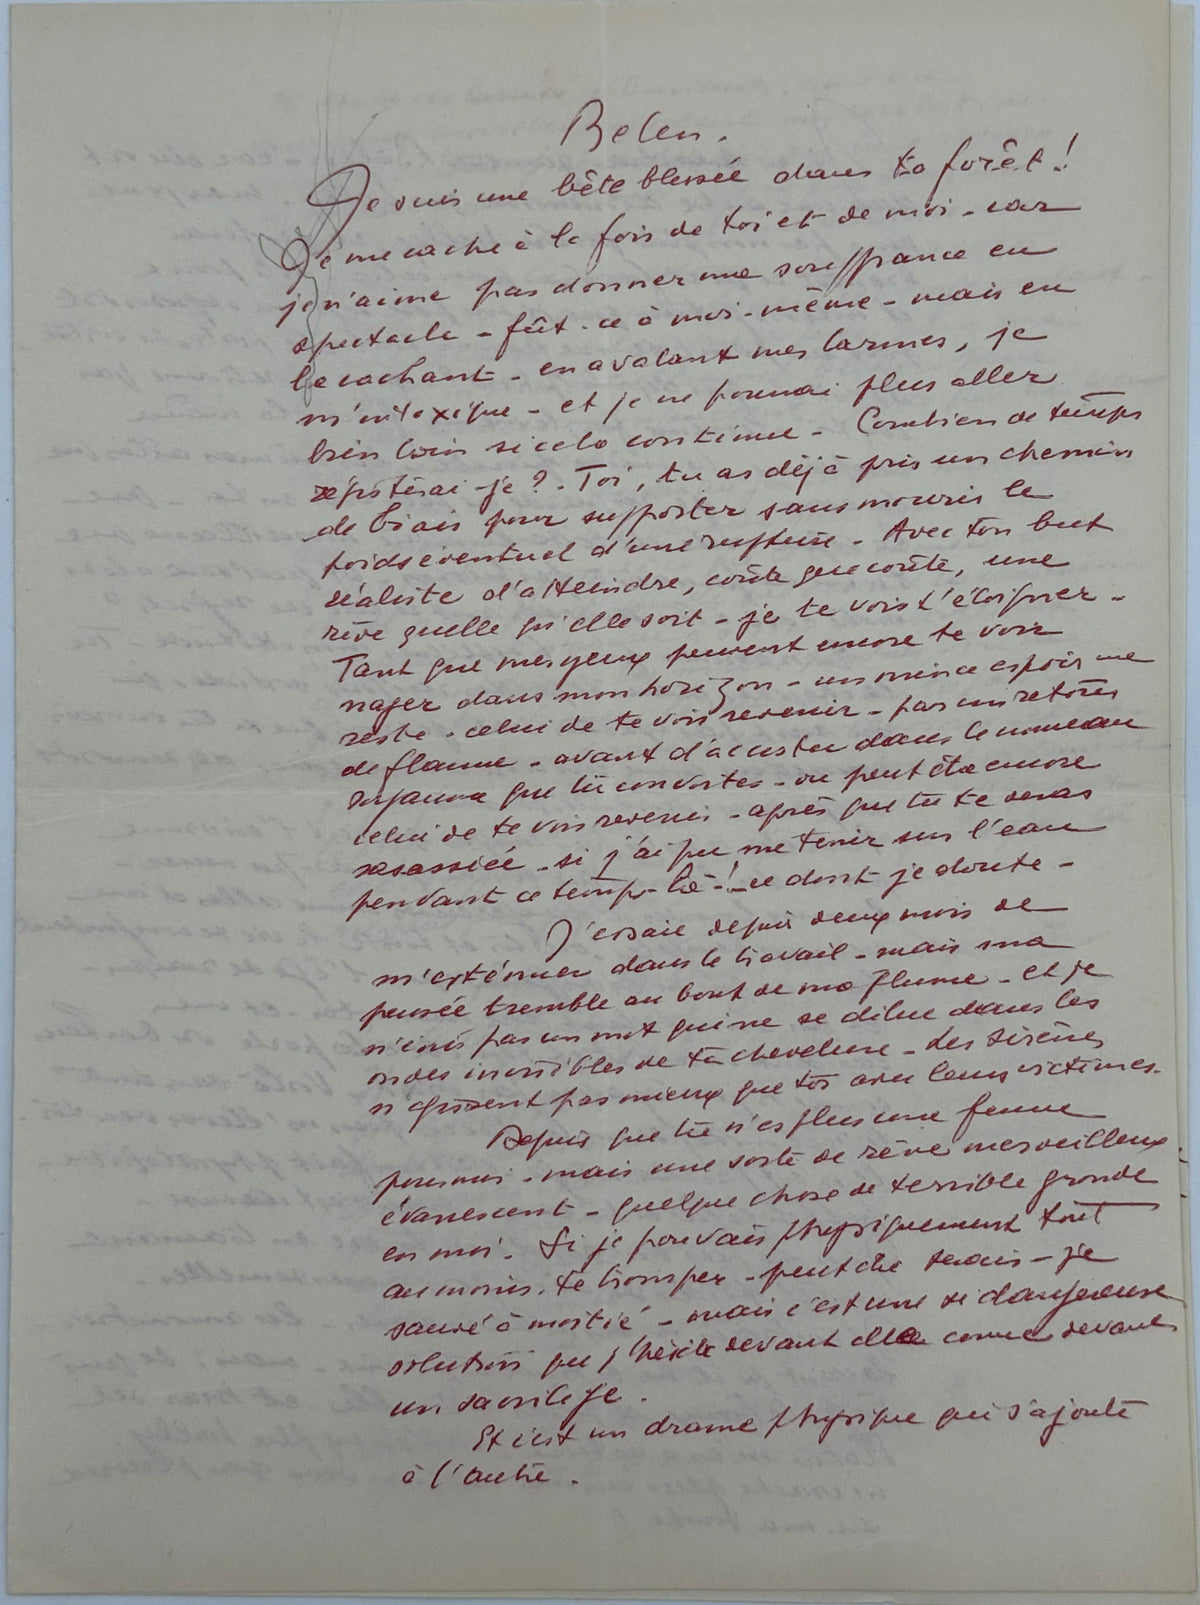 Belen.
Je suis une bête blessée dans ta forêt!
Je me cache à la fois de toi et de moi - car
je n'aime pas donner une souffrance en
spectacle - fût-ce à moi-même - mais en
le cachant - en avalant mes larmes, je
m'intoxique - et je ne pourrai plus aller
bien loin si cela continue - Combien de temps
résisterai-je? - Toi, tu as déjà pris un chemin
de biais pour supporter sans mourir le
poids éventuel d'une rupture - Avec ton but
réaliste d'atteindre, coûte que coûte, une
rêve quelle qu'elle soit - je te vois t'éloigner -
Tant que mes yeux peuvent encore te voir
nager dans mon horizon - un mince espoir me
reste - celui de te voir revenir - par un retour
de flamme - avant d'accoster dans le nouveau
royaume que tu convoites - ou peut être encore
celui de te voir revenir - après que tu te seras
rassasiée - si j'ai pu me tenir sur l'eau
pendant ce temp-là! - ce dont je doute -
J'essaie depuis deux mois de
m'exténuer dans le travail - mais ma
pensée tremble au bout de ma plume - et je
n'écris pas un mot qui ne se dilue dans les
ondes invisibles de ta chevelure - Les sirènes
n'agissent pas mieux que toi avec leurs victimes -
Depuis que tu n'es plus une femme
pour moi - mais une sorte de rêve merveilleux
évanescent - quelque chose de terrible gronde
en moi - Si je pouvais physiquement tout
au moins, te tromper - peut être serais-je
sauvé à moitié - mais c'est une si dangereuse
solution que j'hésite devant elle comme devant
un sacrilège.
Et c'est un drame physique qui s'ajoute
à l'autre.